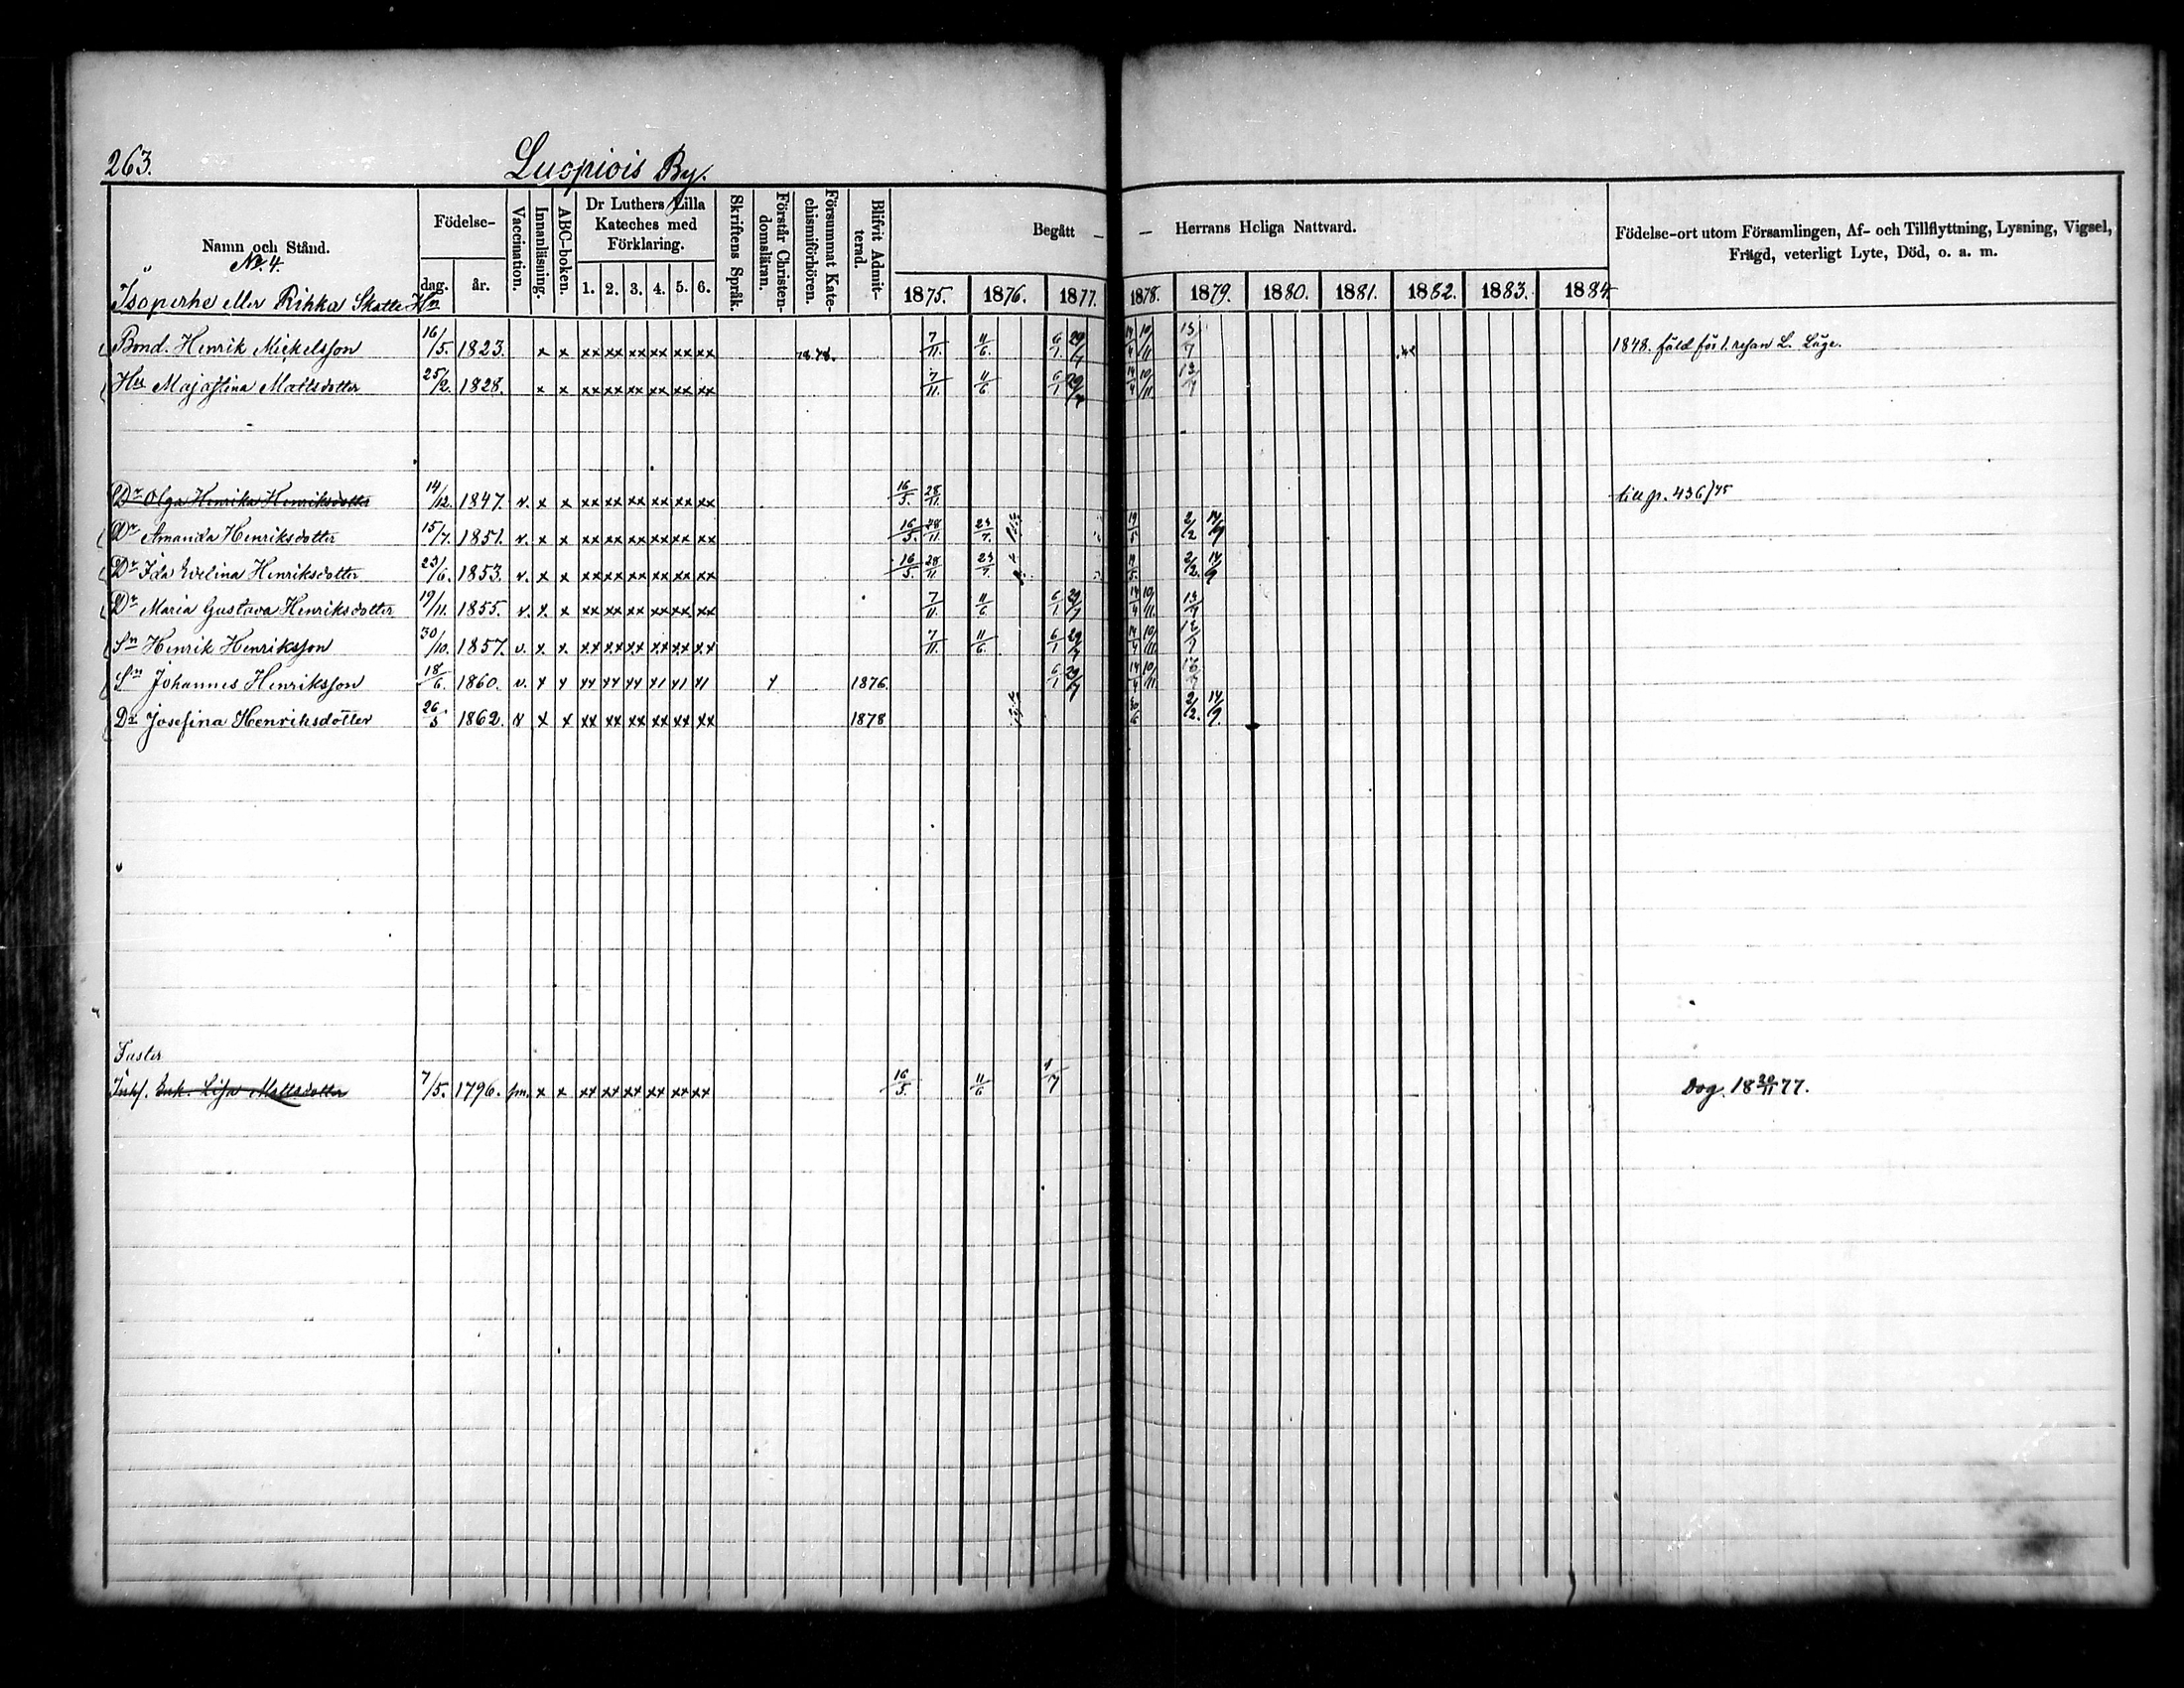 263.
Luopiois By.
Namn och Stånd.
No. 4.
Isoperhe eller Rihka Skatte Hn
Födelse-
dag. år.
Vaccination.
Innanläsning.
ABC-boken.
Dr Luthers Lilla Kateches med Förklaring.
1. 2. 3. 4. 5. 6.
Skriftens Språk.
Förstår Christendomsläran.
Försummat Katechismiförhören.
Blifvit Admitterad.
Begått — — Herrans Heliga Nattvard.
1875. 1876. 1877. 1878. 1879. 1880. 1881. 1882. 1883. 1884.
Födelse-ort utom Församlingen, Af- och Tillflyttning, Lysning, Vigsel,
Frägd, veterligt Lyte, Död, o. a. m.
Bond. Henrik Mickelsson 16/5. 1823. x x xx xx xx xx xx xx 7/11. 11/6 6/1 29/7 14/4 10/11 13/7 1848. fäld för 1. resan L. Läge.
Hu Majastina Mattsdotter 25/2. 1828. x x xx xx xx xx xx xx 7/11. 11/6 6/1 29/7 14/4 10/11 13/7
Dr Olga Henrika Henriksdotter 14/12. 1847. v. x x xx xx xx xx xx xx 16/5 28/11. till p. 436/75
Dr Amanda Henriksdotter 15/7. 1851. v. x x xx xx xx xx xx xx 16/5. 28/11. 23/7. 19/5 2/2 14/9
Dr Ida Evelina Henriksdotter 23/6. 1853. v. x x xx xx xx xx xx xx 16/5. 28/11 23/7. 19/5. 2/2. 14/9
Dr Maria Gustava Henriksdotter 19/11. 1855. v. x. x xx xx xx xx xx xx 7/11. 11/6 6/1 29/7 14/4 10/11. 13/7
Sn Henrik Henriksson 30/10. 1857. v. x x xx xx xx xx xx xx 7/11. 11/6. 6/1 29/7 14/4 10/11. 13/7
Sn Johannes Henriksson 18/6. 1860. v. x x xx xx xx x1 x1 x1 x 1876. 6/1 29/7 14/4 10/11. 13/7
Dr Josefina Henriksdotter 26/5 1862. v x x xx xx xx xx xx xx 1878 30/6 2/2. 14/9.
Faster
Inhs. Enk. Lisa Mattsdotter 7/5. 1796. x x xx xx xx xx xx xx 16/5. 11/6 1/7 Dog. 18 30/11 77.